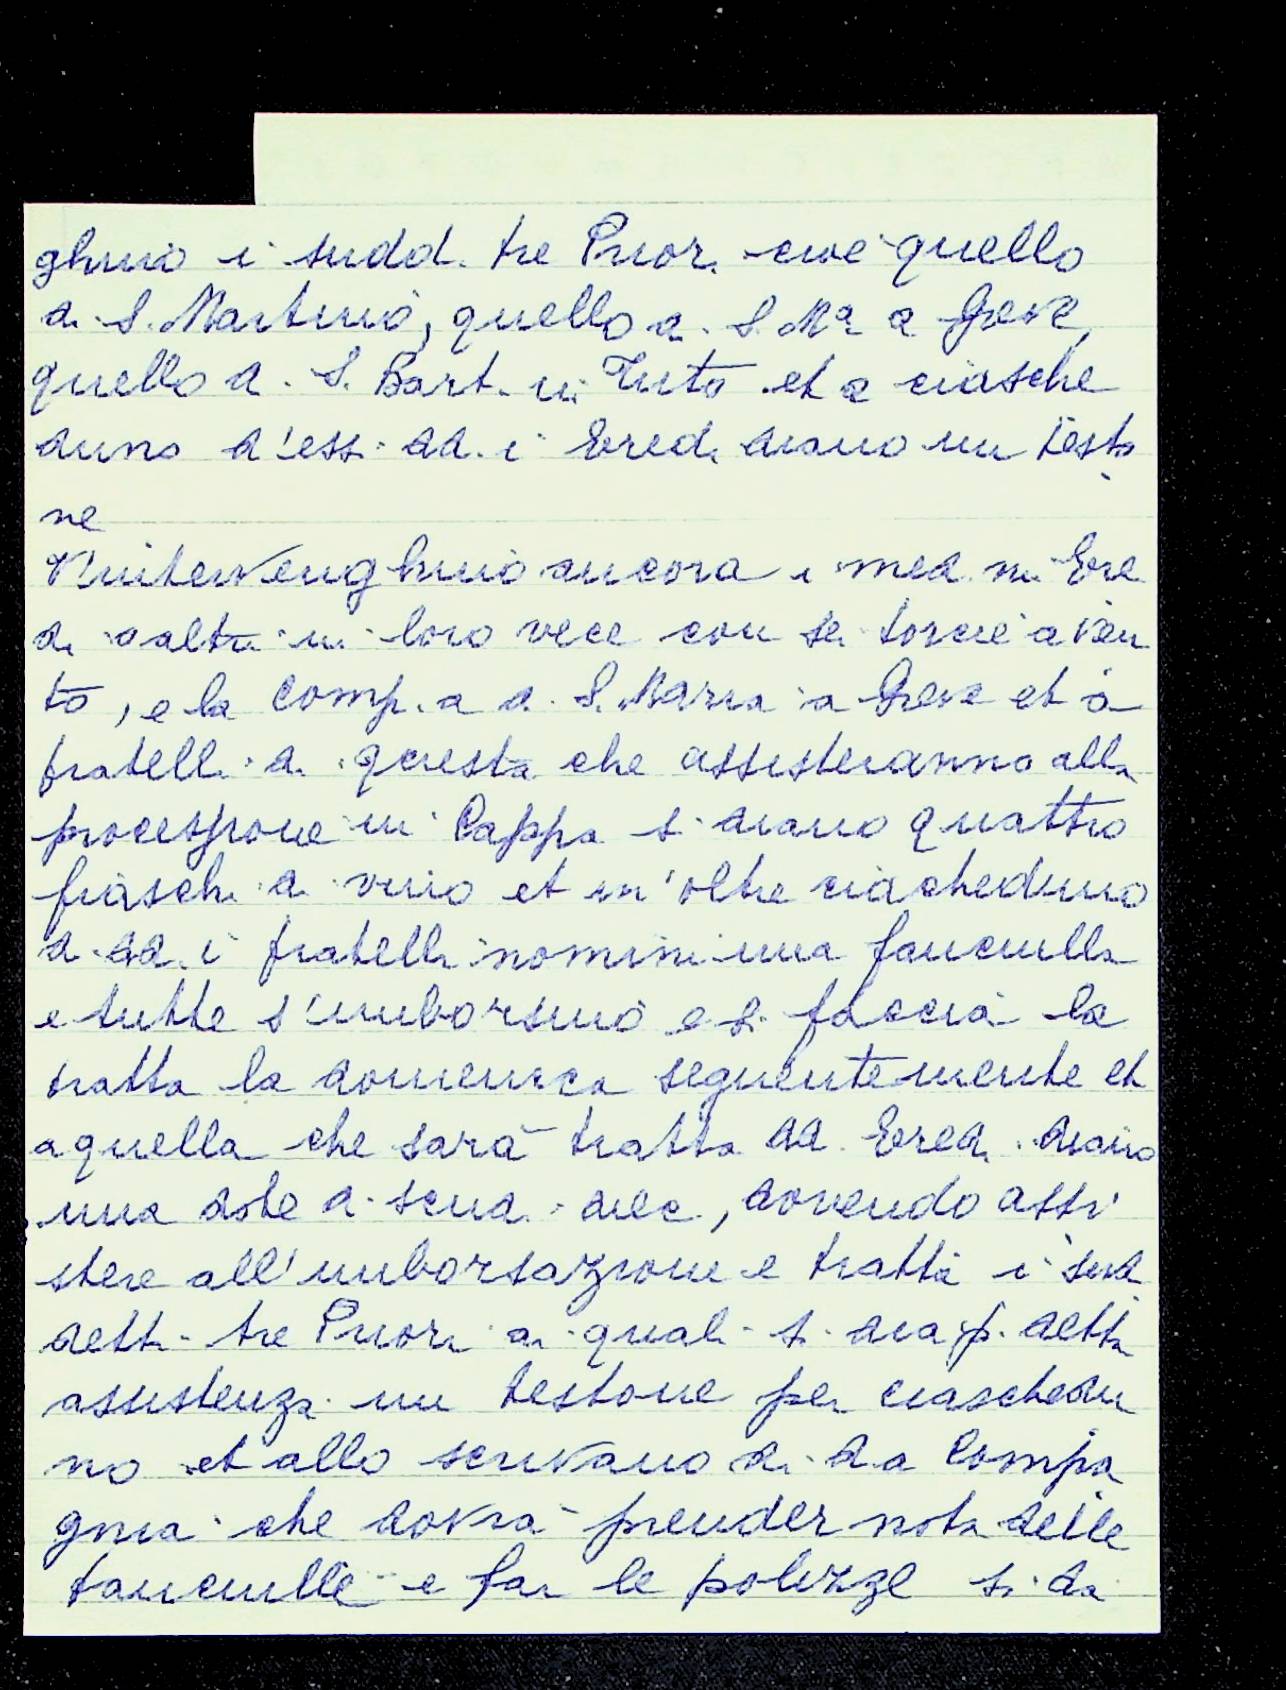 ghino i sudd. tre Prior. cioè quello
di S. Martino, quello di S. Ma a Greve,
quello di S. Bart. in Tuto et a ciasche
duno d'ess. dd. i Ered. diano un testo
ne
V'intervenghino ancora i med. mi Ere
di o altri in loro vece con sei torcie a ven
to, e la Comp.a di S. Maria a Greve et a
fratelli di questa che assisteranno alla
processione in Cappa si diano quattro
fiaschi di vino et in'oltre ciacheduno
di dd. i fratelli nomini una fanciulla
e tutte s'imborsino e si faccia la
tratta la domenica seguentemente et
a quella che sarà tratta dd. Ered. diano
una dote di scudi diec, dovendo assi
stere all'imborsazione e tratta i sud
detti tre Priori ai quali si dia p. detta
assistenza un testone per ciaschedu
no et allo scrivano di d.a Compa
gnia che dovrà prender nota delle
fanciulle e far le polizze si dia